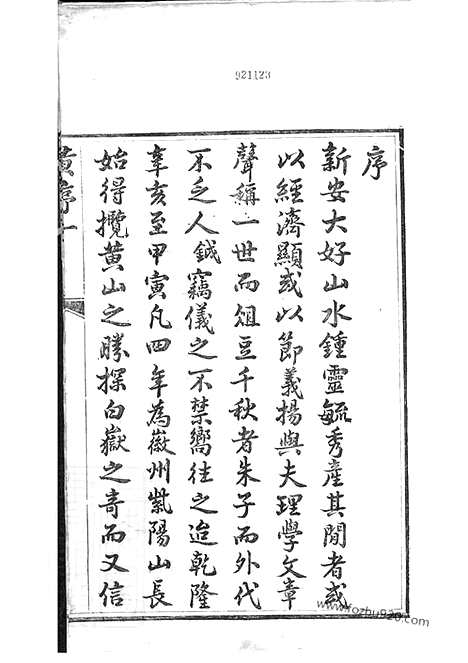 921123
序
新安大好山水鍾靈毓秀產其間者或
以經濟顯或以節義揚與夫理學文章
聲稱一世而俎豆千秋者朱子而外代
不乏人鉞竊儀之不禁嚮往之迨乾隆
辛亥至甲寅凡四年為徽州紫陽山長
始得攬黃山之勝探白嶽之奇而又信
黃序一
www.fozhu920.com